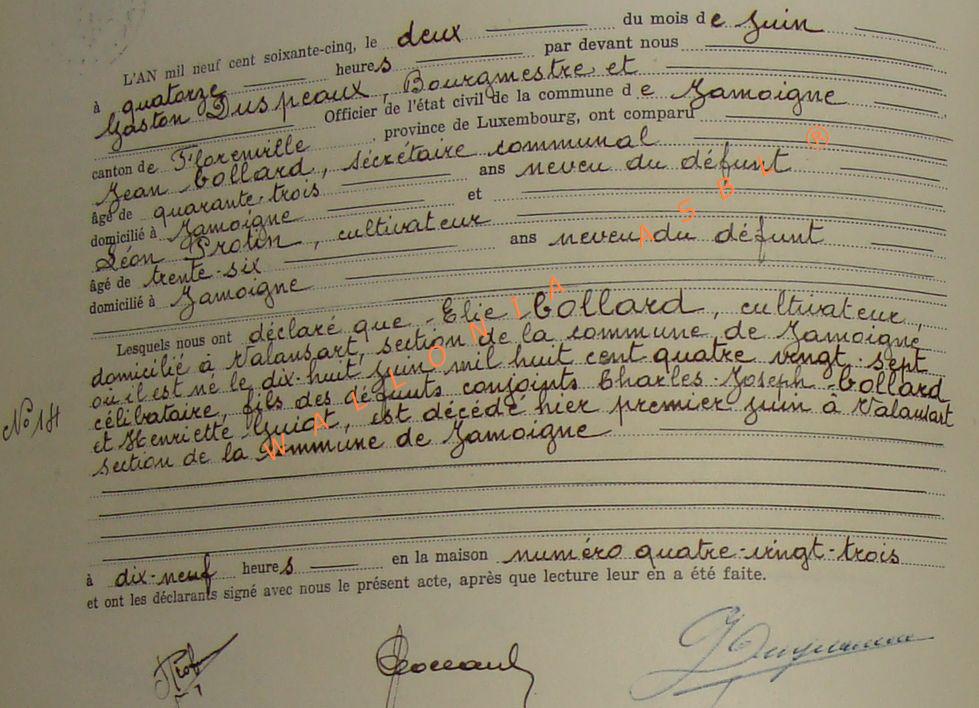 L'AN mil neuf cent soixante-cinq, le deux du mois de juin
à quatorze heures par devant nous
Gaston Duspeaux, Bourgmestre et
Officier de l'état civil de la commune de Jamoigne
canton de Florenville province de Luxembourg, ont comparu
Jean Collard, secrétaire communal
âgé de quarante-trois ans neveu du défunt
domicilié à Jamoigne et
Léon Protin, cultivateur
âgé de trente-six ans neveu du défunt
domicilié à Jamoigne
Lesquels nous ont déclaré que Elie Collard, cultivateur,
domicilié à Valansart, section de la commune de Jamoigne
où il est né le dix-huit juin mil huit cent quatre vingt-sept
célibataire, fils des défunts conjoints Charles-Joseph Collard
et Henriette Guiot, est décédé hier premier juin à Valansart
section de la commune de Jamoigne
à dix-neuf heures en la maison numéro quatre-vingt-trois
et ont les déclarants signé avec nous le présent acte, après que lecture leur en a été faite.
WALLONIA ASBL ®